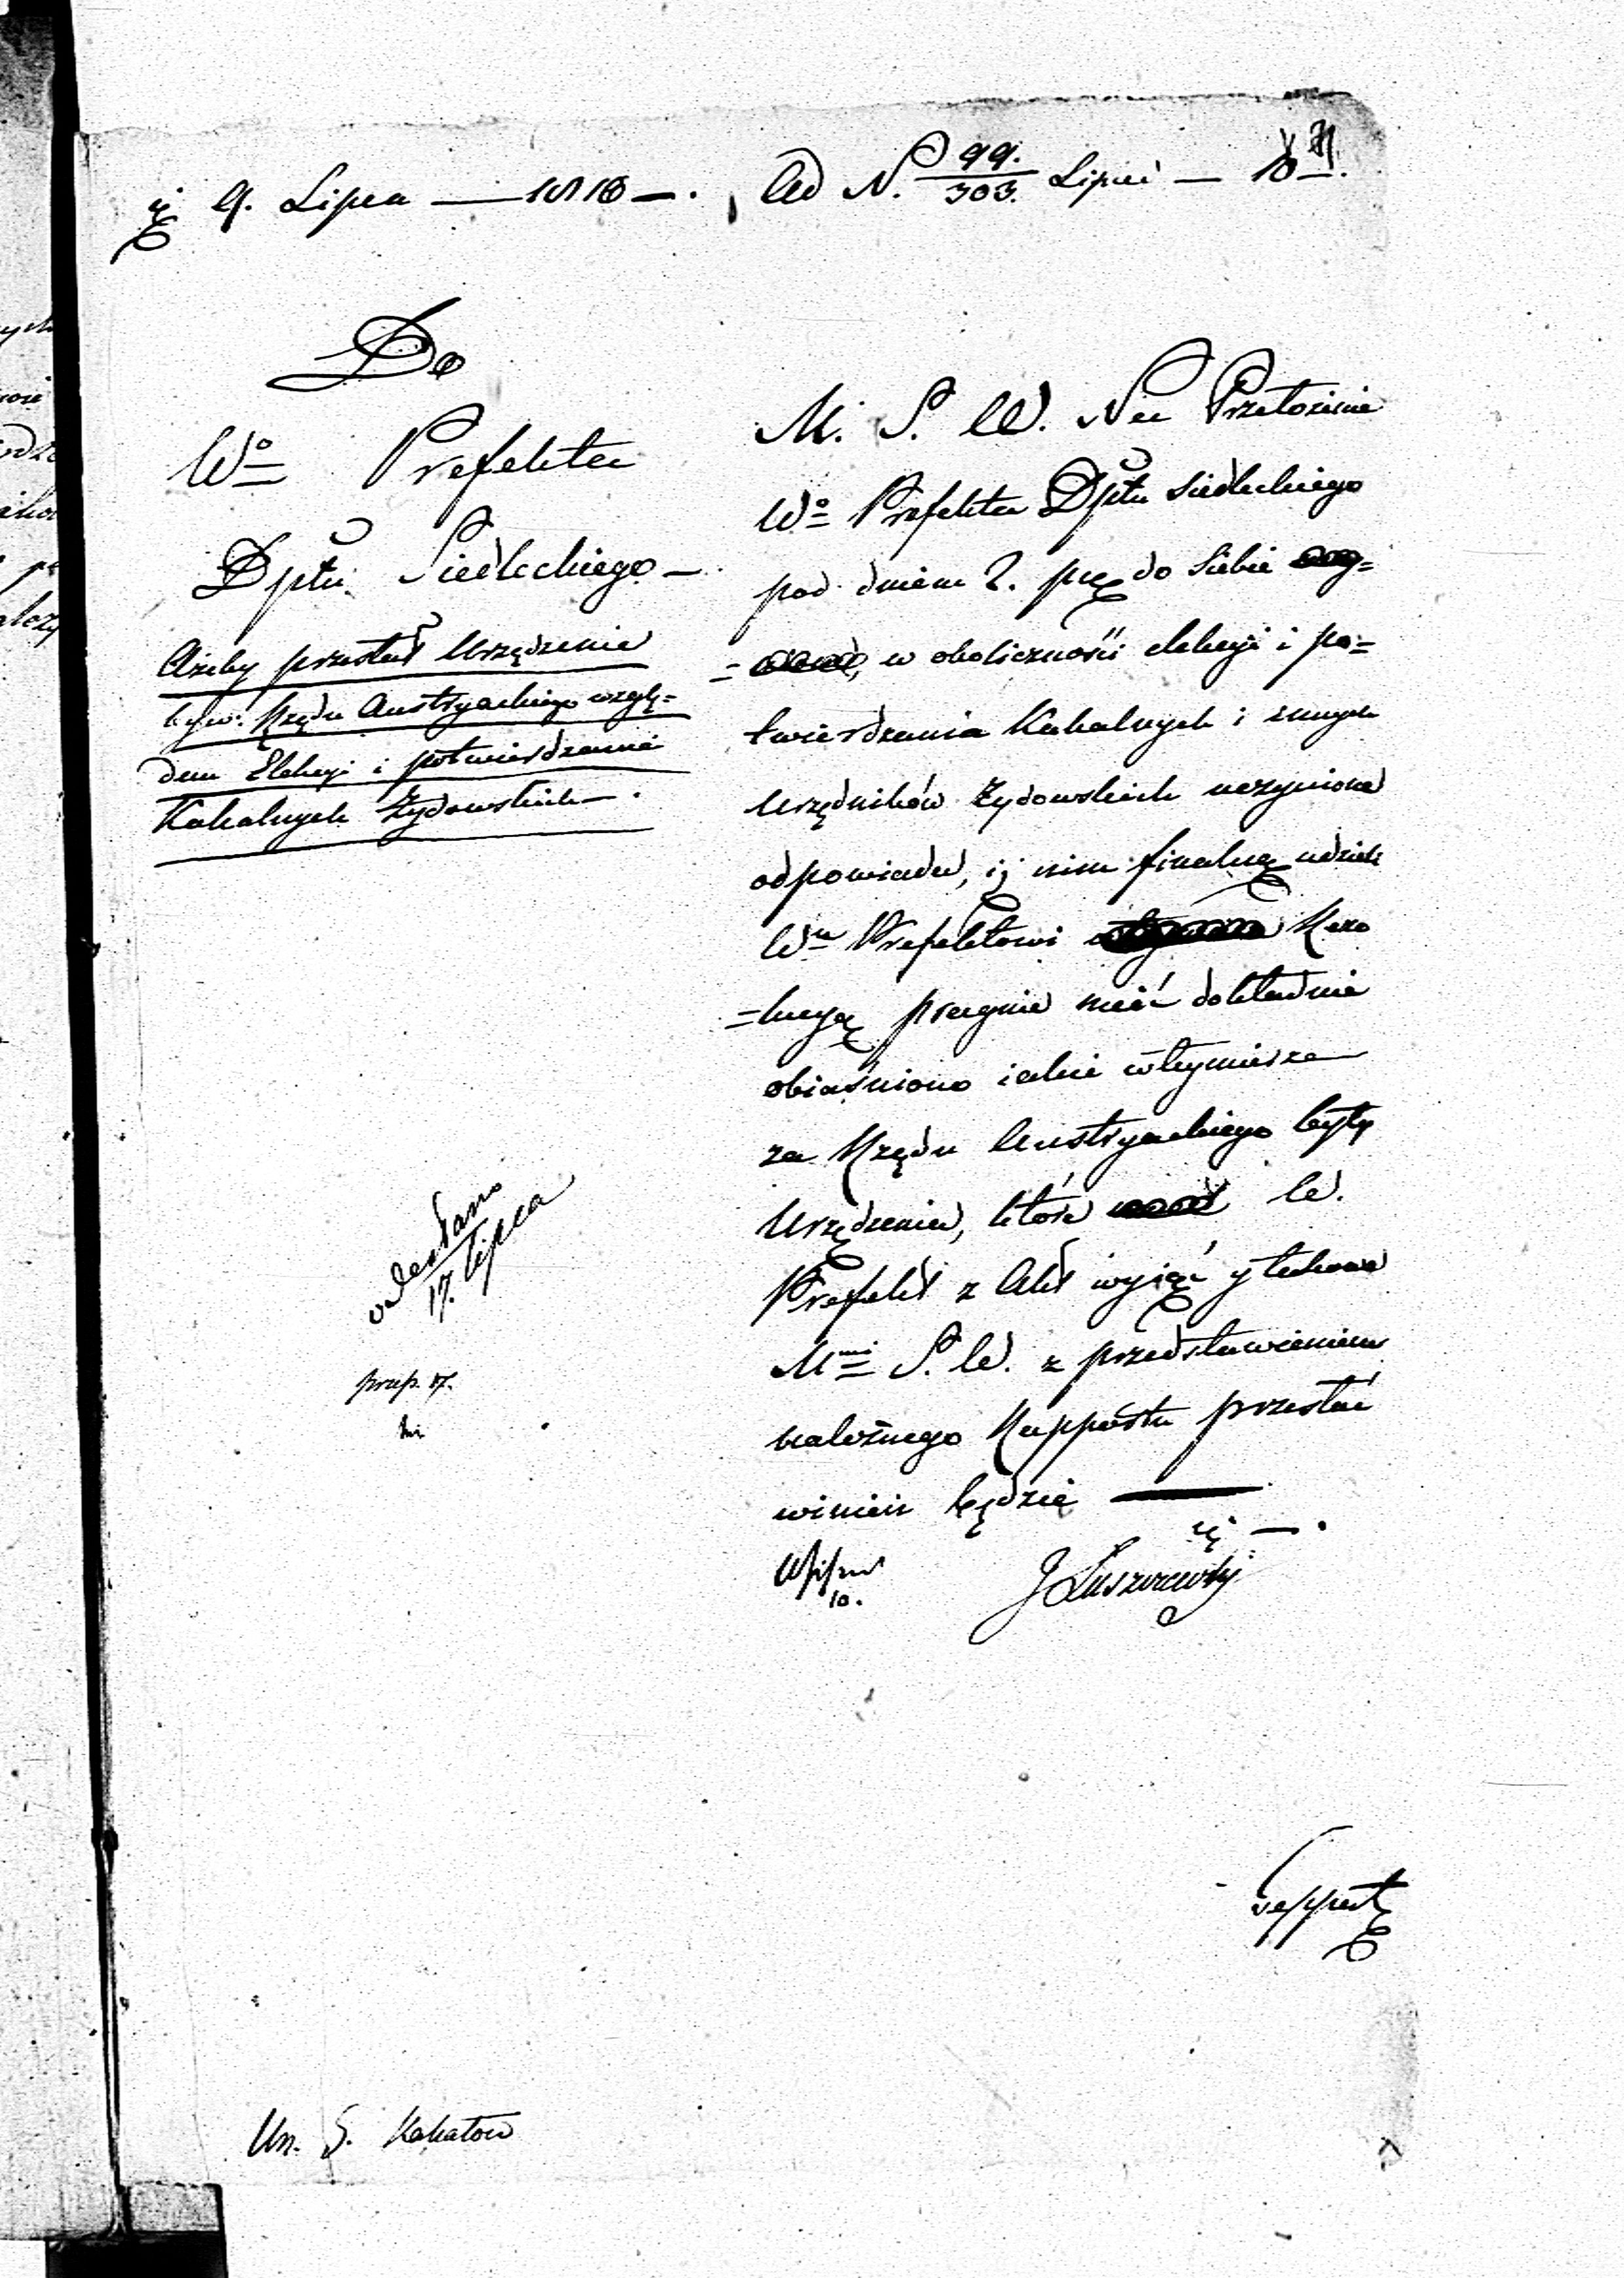 9. Lipca — 1810 —.
Ad N. 99./303. Lipiec — 18
Do
Wo Prefekta
Dptu. Siedleckiego —
Ażeby przesłał Urządzenie
byw: Rządu Austryackiego wzglę=
dem Elekcyi i potwierdzenia
Kahalnych Żydowskich —.
odesłano
17. lipca
prap. 17.
M. S. W. Na Przełożenie
Wo Prefekta Dptu Siedleckiego
pod dniem 2. pr do Siebie
w okoliczności elekcyi i po=
twierdzenia Kahalnych i innych
Urzędników Żydowskich uczynione
odpowiada, iż nim finalną udzieli
Wu Prefektowi Rezo
=lucyą pragnie mieć dokładnie
obiaśniono iakie w tey mierze
za Rządu Austryackiego były
Urządzenia, które W.
Prefekt z Akt wyiąć y takowe
Mwi S. W. z przedstawieniem
należnego Rapportu przesłać
winien będzie —
J Łuszczewski
Wn. S. Kahałów